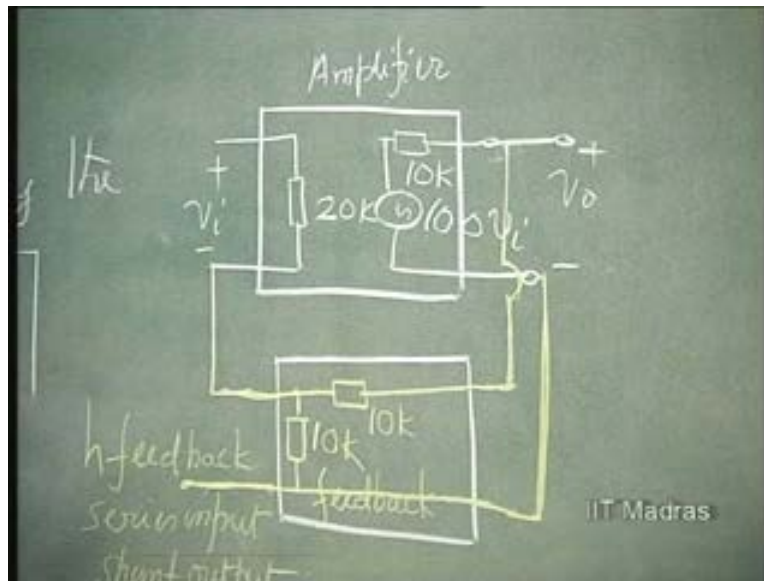 Amplifier
the
+
+
10k
vi
20k
100vi
vo
-
-
10k
10k
h-feedback
feedback
series input
shunt output
IIT Madras